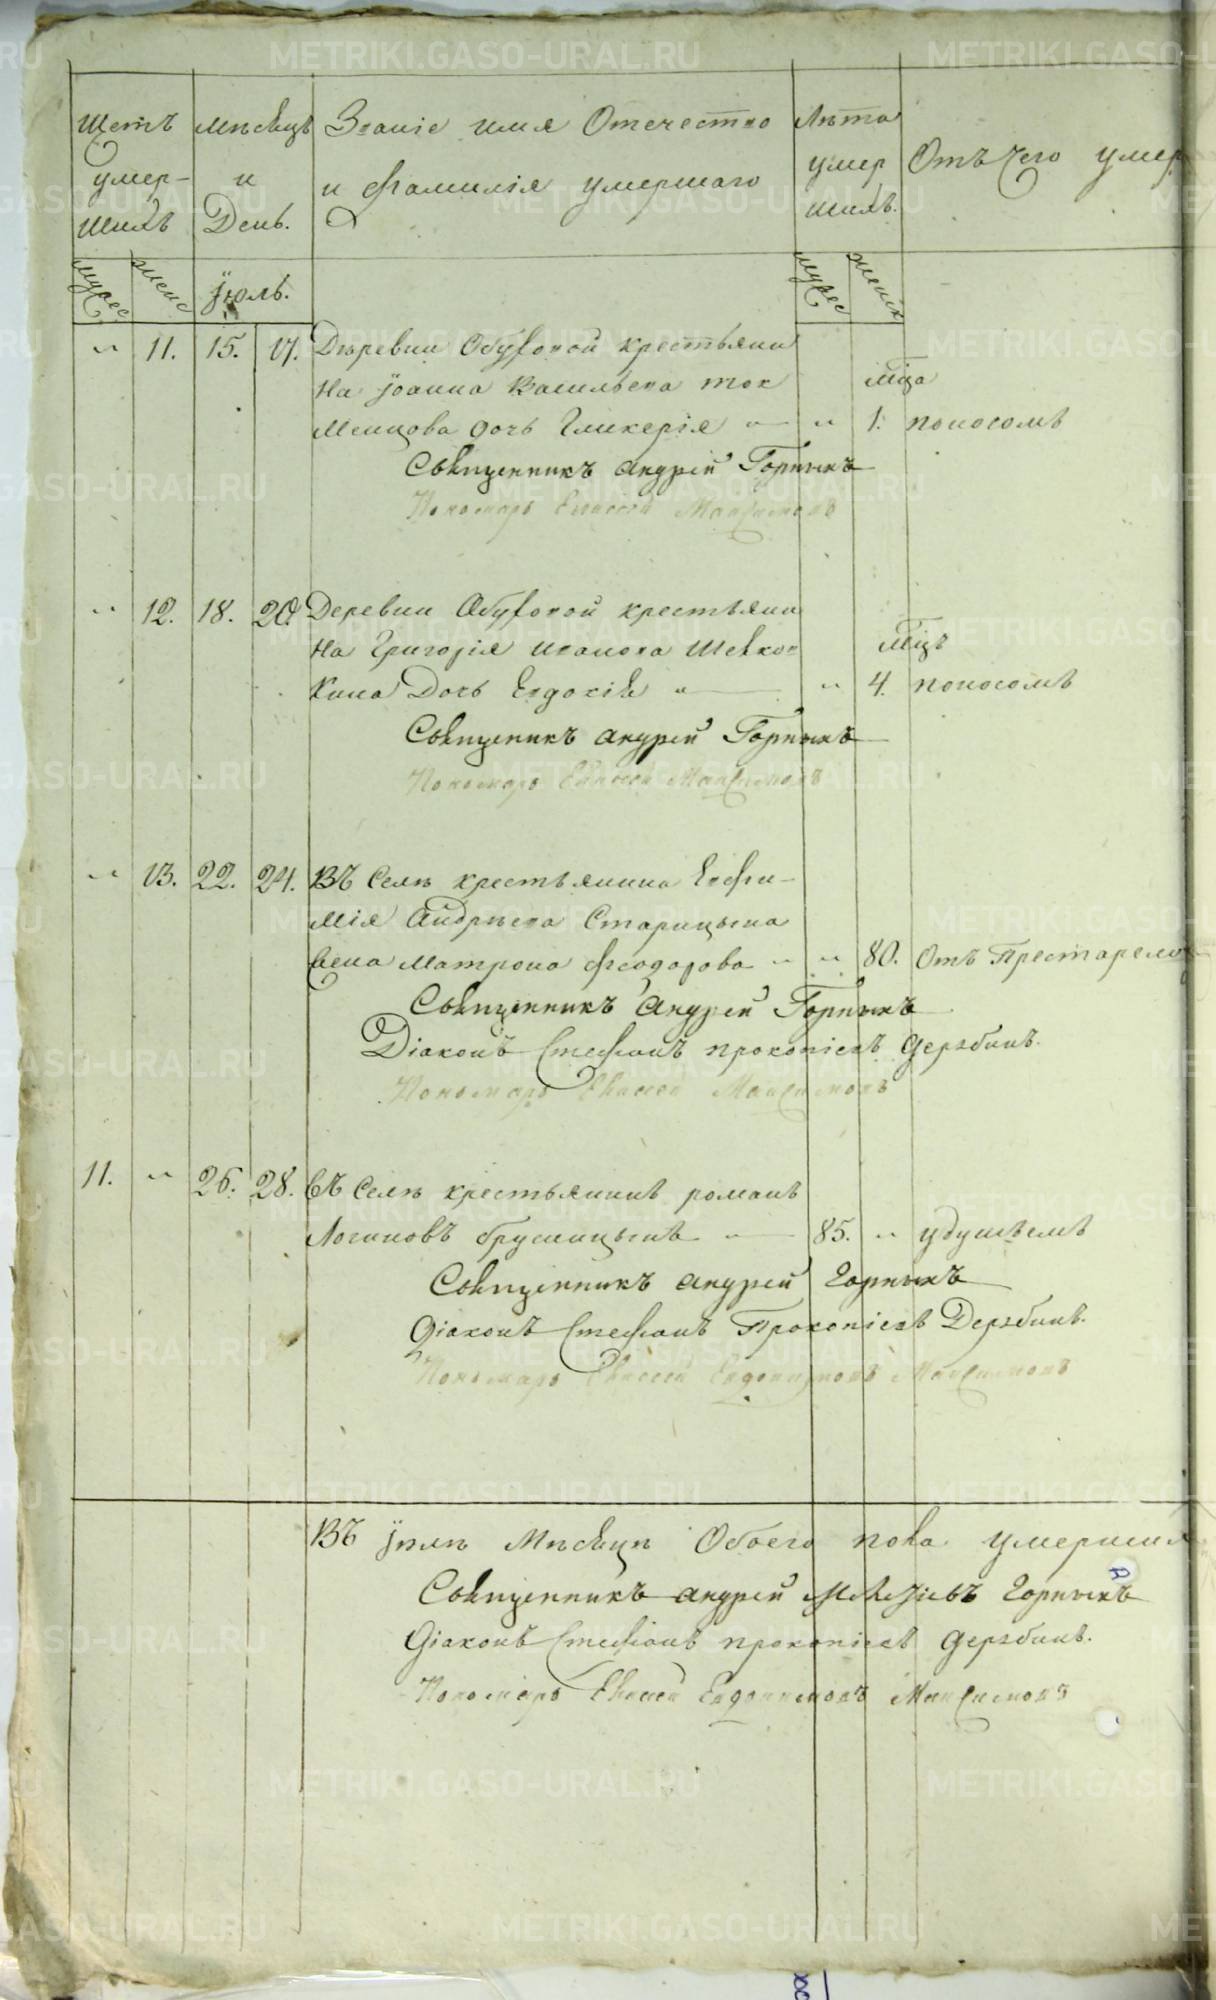 Щетъ умер- шихъ
мѣсяцъ и День.
Званіе имя Отечество
и фамилія умершаго
Лѣта умер шихъ.
Отъ чего умер
мужес женс
Іюль.
мужес женск
" 11. 15. 17. Дѣревни Обуховой крестьяни
на Іоанна Васильева ток мца
менцова дочь Гликерія " " 1. поносомъ
Священникъ Андрей Горныхъ
Пономарь Евсеей Максимовъ
" 12. 18. 20. Деревни Обуховой крестьяни
на Григорія иванова Шевко- мцъ
кина Дочь Евдокія " " 4. поносомъ
Священикъ Андрей Горныхъ
Пономарь Евсеей Максимовъ
" 13. 22. 24. Въ Селѣ крестьянина Евфи-
мія Андрѣева Старицына
жена Матрона Феодорова " " 80. Отъ Престарело
Священникъ Андрей Горныхъ
Діаконъ Стефанъ прокопіевъ Дерябинъ.
Пономарь Евсеей Максимовъ
11. " 26. 28. Въ Селѣ крестьянинъ романъ
Логиновъ брусницынъ " 85. " удушьемъ
Священникъ Андрей Горныхъ
Діаконъ Стефанъ Прокопіевъ Дерябинъ.
Пономарь Евсеей Евдокимовъ Максимовъ
Въ Іюлѣ Мѣсяцѣ Обоего пола умерших
Священникъ Андрей Горныхъ
Діаконъ Стефанъ прокопіевъ Дерябинъ.
Пономарь Евсеей Евдокимовъ Максимовъ
METRIKI.GASO-URAL.RU